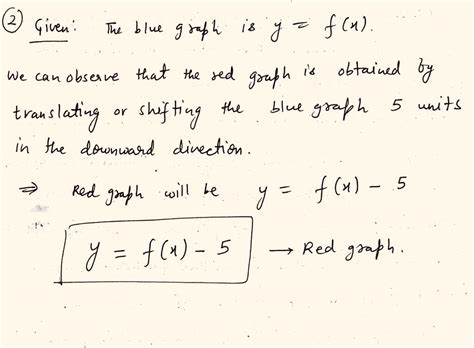 ② Given: The blue graph is y = f(x).
We can observe that the red graph is obtained by
translating or shifting the blue graph 5 units
in the downward direction.
⇒ Red graph will be y = f(x) - 5
y = f(x) - 5 → Red graph.